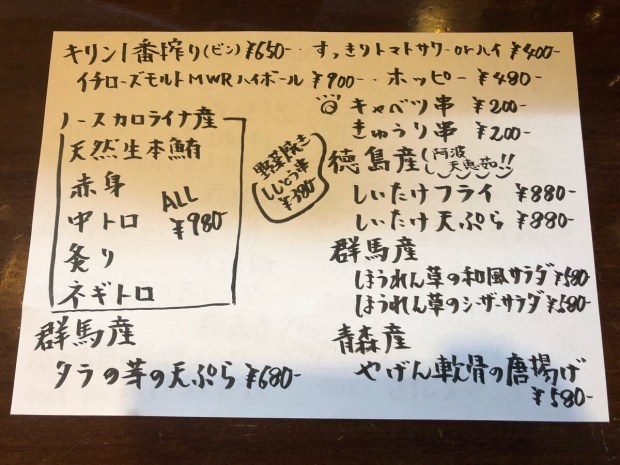 キリン1番搾り(ビン)¥650- ・すっきりトマトサワーorハイ ¥400-
イチローズモルトMWRハイボール ¥900- ・ホッピー ¥480-
ノースカロライナ産
天然生本鮪
赤身
中トロ
炙り
ネギトロ
ALL
¥980-
群馬産
タラの芽の天ぷら ¥680-
野菜焼き
ししとう串
¥380-
キャベツ串 ¥200-
きゅうり串 ¥200-
徳島産(阿波天恵茹!!)
しいたけフライ ¥880-
しいたけ天ぷら ¥880-
群馬産
ほうれん草の和風サラダ ¥580-
ほうれん草のシーザーサラダ ¥580-
青森産
やげん軟骨の唐揚げ
¥580-